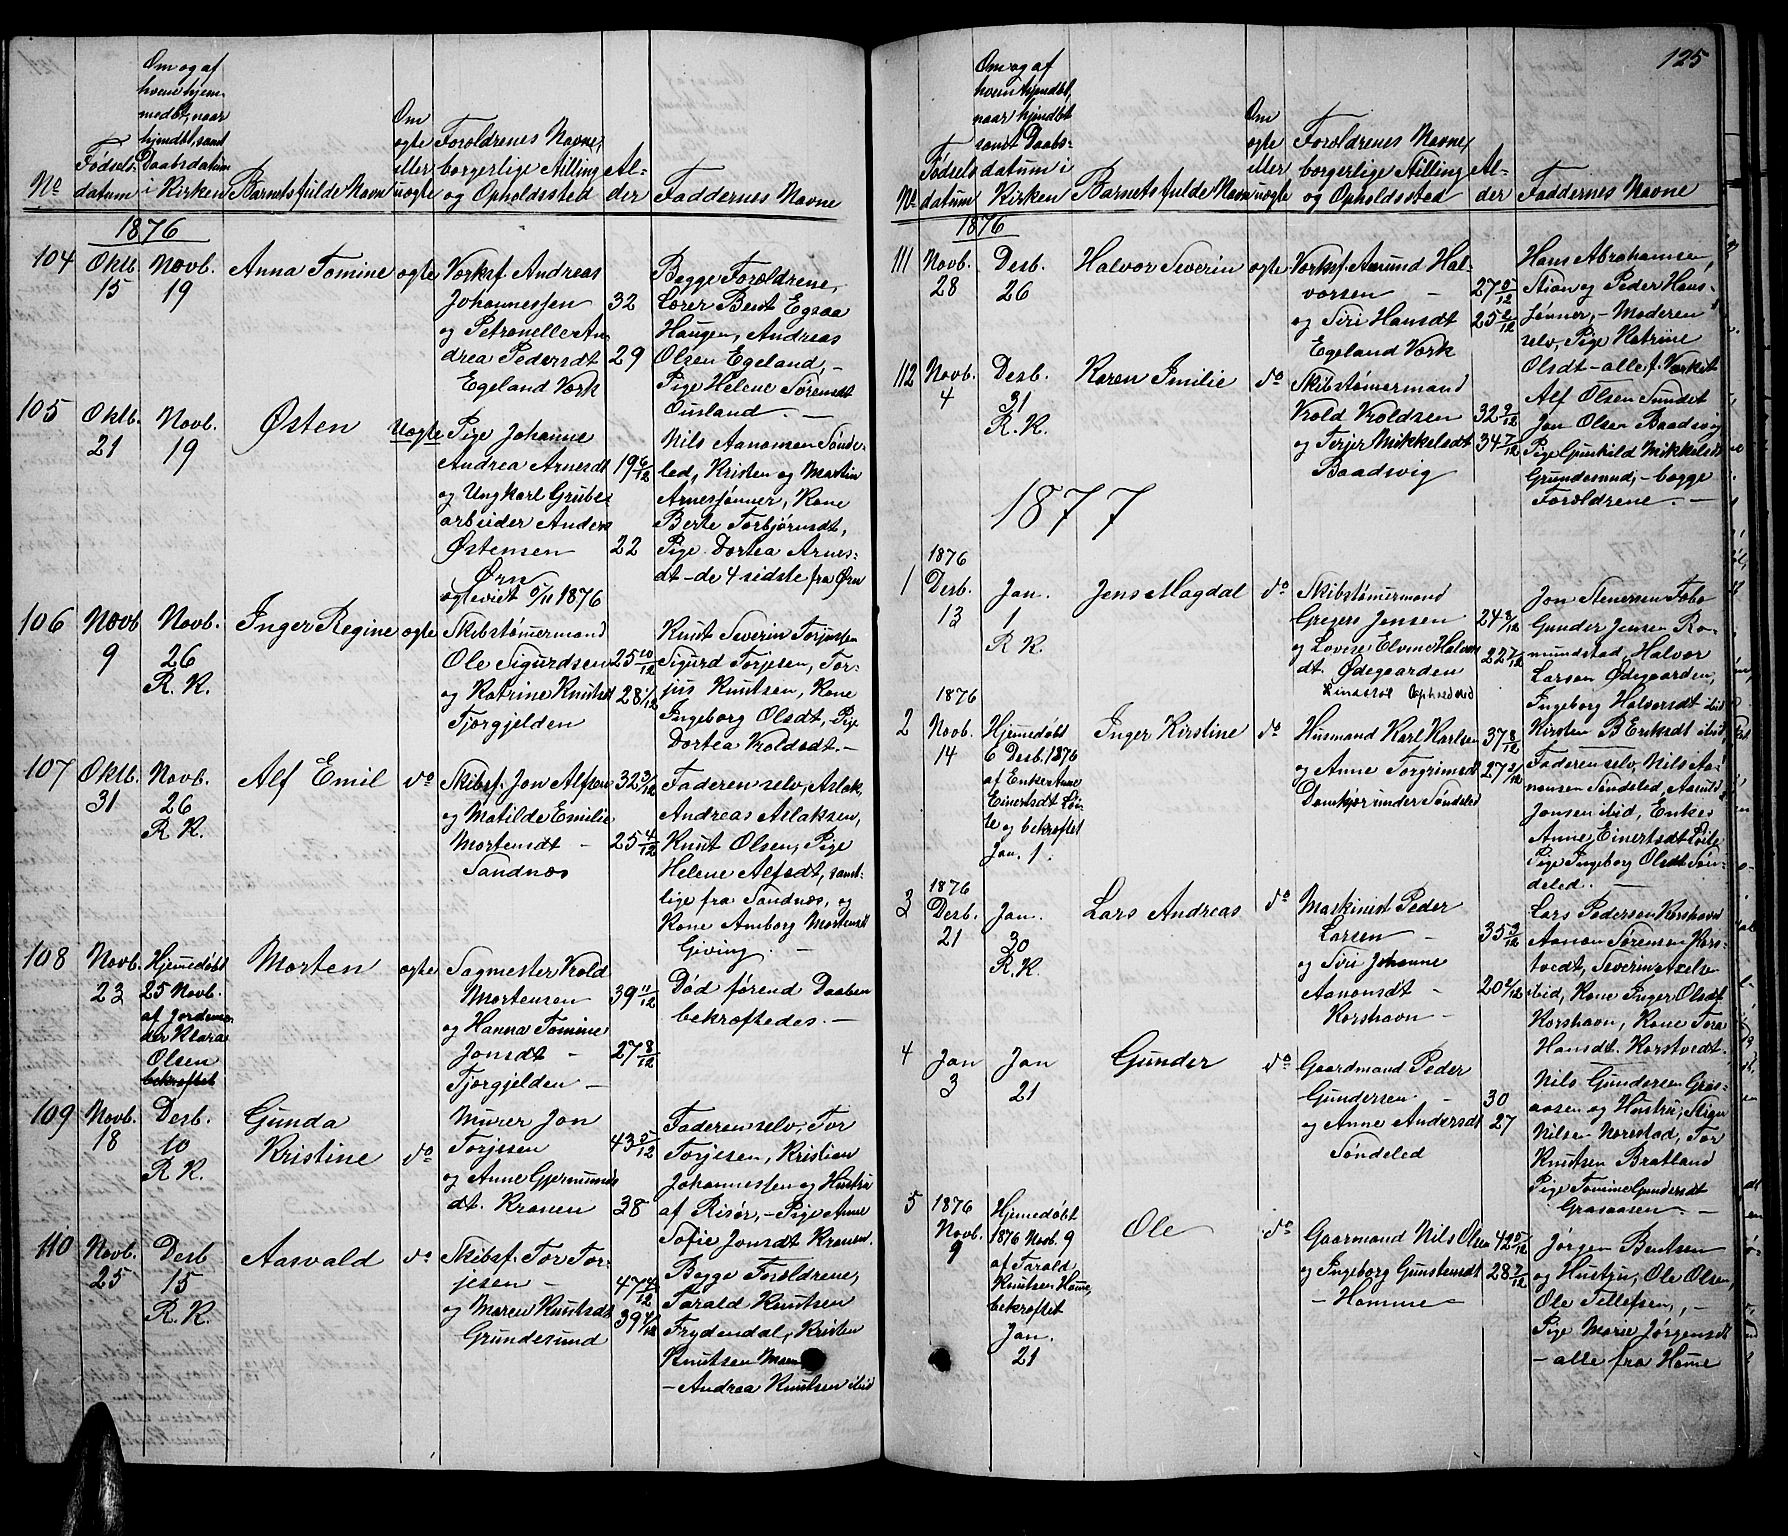 125
No
Fødsels-
datum
Om og af
hvem hjem-
medøbt, naar
hjmdøbt, samt
Daabsdatum
i Kirken
Barnets fulde Navn
Om
ogte
eller
uogte
Foroldrenes Navne,
borgerlige Stilling
og Opholdssted
Al-
der
Faddernes Navne
1876
104
Oktb.
15
Novb.
19
Anna Tomine
ogte
Vorksf. Andreas
Johannessen
32
og Petronelle An
drea Pedersdt
29
Egeland Vork
Begge Foroldrene,
Lorer Bent Egsaa
Haugen, Andreas
Olsen Egeland, -
Pige Helene Sørensdt
Ousland. -
105
Oktb.
21
Novb.
19
Østen
Uogte
Pige Johanne
Andrea Arnesdt
19 6/12
og Ungkarl Grube
arbeider Anders
Østensen
22
Ørn
ogteviet 5/11 1876
Nils Aanonsen Sønde-
led, Kristen og Martin
Arnesønner, Kone
Berte Torbjørnsdt,
Pige Dortea Arnes-
dt - de 4 sidste fra Ørn
106
Novb
9
Novb.
26
R. K.
Inger Regine
ogte
Skibstømermand
Ole Sigurdsen
25 10/12
og Katrine Knutsdt
28 1/12
Tjorgjelden
Knut Severin Torjussen
Sigurd Torjesen, Tor-
jus Knutsen, Kone
Ingeborg Olsdt, Pige
Dortea Kroldsdt. -
107
Oktb.
31
Novb.
26
R. K.
Alf Emil
do
Skibsf. Jon Alfsen
32 3/12
og Matilde Emilie
Mortensdt -
25 4/12
Sandnos
Faderen selv, Aslak,
Andreas Aslaksen,
Knut Olsen, Pige
Helene Alfsdt, samt-
lige fra Sandnos, og
Kone Amborg Mortensdt
Giving. -
108
Novb.
23
Hjemedøbt
25 Novb.
af Jordemo
der Klara
Olsen
bekroftet
Morten
ogte
Sagmester Krold
Mortensen
39 11/12
og Hanna Tomine
Jonsdt -
27 8/12
Tjorgjelden -
Død førend Daaben
bekroftedes. -
109
Novb.
18
Desb.
10
R. K.
Gunda
Kristine
do
Murer Jon
Torjesen
43 5/12
og Anne Gjermunds
dt. Kranen
38
Faderen selv, Tor
Torjesen, Kristian
Johannessen og Hustru
af Risør, - Pige Anne
Sofie Jonsdt Kranen.
110
Novb.
25
Desb
15
R. K.
Aasvald
do
Skibsf. Tor Tor-
jesen -
47 4/12
og Maren Knutsdt
Grundesund
Begge Foroldrene,
Tarald Knutsen
Frydendal, Kristen
Knutsen
- Andrea Knutsen ibid
No
Fødsels
datum
Om og af
hvem hjemdøbt,
naar hjemdøbt
samt Daabs-
datum i
Kirken
Barnets fulde Navn
Om
ogte
eller
uogte
Foroldrenes Navne,
borgerlige Stilling
og Opholdssted
Al-
der
Faddernes Navne
1876
111
Novb.
28
Desb.
26
Halvor Severin
ogte
Vorksf. Amund Hal-
vorsen -
27 5/12
og Siri Hansdt
25 2/12
Egeland Vork
Hans Abrahamsen,
Stian og Peder Hans-
sønner, - Moderen
selv, Pige Katrine
Olsdt - alle f. Vorket
112
Novb.
4
Desb.
31
R. K.
Karen Emilie
do
Skibstømermand
Krold Kroldsen
32 9/12
og Terjer Mikkelsdt
34 7/12
Baadsvig
Alf Olsen Sundet
Jon Olsen Baadsvig
Pige Gunhild Mikkelsdt
Grundesund, - begge
Foroldrene. -
1877
1
1876
Desb.
13
Jan.
1
R. K.
Jens Magdal
do
Skibstømermand
Gregers Jensen
24 8/12
og Lovise Elvine Halvors
dt. Ødegaarden
22 7/12
Jon Stenersen Fobo
Gunder Jensen Ro-
mundstad, Halvor
Larsen Ødegaarden,
Ingeborg Halvorsdt ibid
Kirsten B Eriksdt ibid,
2
1876
Novb.
14
Hjemedøbt
6 Desb. 1876
af Enke Anne
Einertsdt Løi
te og bekroftet
Jan. 1.
Inger Kirstine
do
Husmand Karl Karlsen
37 8/12
og Anne Torgrimsdt
27 2/12
under Søndeled
Faderen selv, Nils Aa-
nonsen Søndeled, Aanund
Jonsen ibid, Enke
Anne Einertsdt Løite
Pige Ingeborg Olsdt Søn-
deled. -
3
1876
Desb.
21
Jan.
30
R. K.
Lars Andreas
do
Maskinist Peder
Larsen -
35 3/12
og Siri Johanne
Aanonsdt -
20 2/12
Korshavn -
Lars Pedersen Korshavn
Aanon Sørensen Kors-
tvedt, Severin Axelsen
ibid, Kone Inger Olsdt
Korshavn, Kone Tora
Hansdt. Korstvedt.
4
Jan
3
Jan
21
Gunder
do
Gaardmand Peder
Gundersen. -
30
og Anne Andersdt
27
Søndeled
Nils Gundersen Graa-
aasen og Hustru, Stian
Nilsen Norestad, Tor
Knutsen Bratland
Pige Tomine Gundersdt
Graaaasen. -
5
1876
Novb.
9
Hjemedøbt
1876 Novb. 9
af Tarald
Knutsen Home,
bekroftet
Jan.
21
Ole
do
Gaarmand Nils Olsen
42 5/12
og Ingeborg Gunstensdt
28 7/12
- Homme -
Jørgen Bentsen
og Hustru, Ole Olsen,
Ole Tellefsen, -
Pige Marie Jørgensdt
- alle fra Home